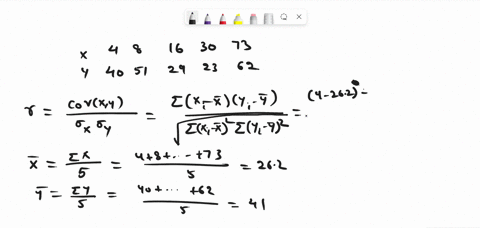 x 4 8 16 30 73
y 40 51 29 23 62
r = cov(x,y) / σx σy = Σ(xi-x̄)(yi-ȳ) / √Σ(xi-x̄)² Σ(yi-ȳ)² = (4-26.2)
x̄ = Σx / 5 = 4+8+...+73 / 5 = 26.2
Ȳ = Σy / 5 = 40+...+62 / 5 = 41